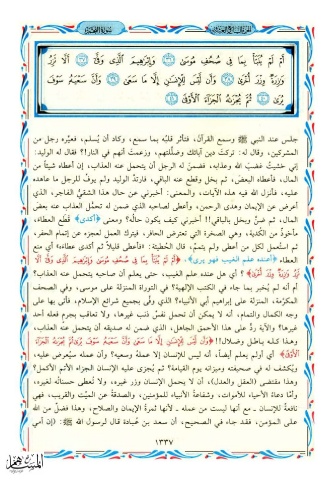 سورة النجم
أَمْ لَمْ يُنَبَّأْ بِمَا فِي صُحُفِ مُوسَىٰ ﴿٣٦﴾ وَإِبْرَاهِيمَ الَّذِي وَفَّىٰ ﴿٣٧﴾ أَلَّا تَزِرُ
وَازِرَةٌ وِزْرَ أُخْرَىٰ ﴿٣٨﴾ وَأَنْ لَيْسَ لِلْإِنْسَانِ إِلَّا مَا سَعَىٰ ﴿٣٩﴾ وَأَنَّ سَعْيَهُ سَوْفَ
يُرَىٰ ﴿٤٠﴾ ثُمَّ يُجْزَاهُ الْجَزَاءَ الْأَوْفَىٰ ﴿٤١﴾
جلس عند النبي ﷺ وسمع القرآن، فتأثر قلبه بما سمع، وكاد أن يُسلم، فعيّره رجل من
المشركين، وقال له: تركتَ دين آبائك وضلَّلتهم، وزعمتَ أنهم في النار!؟ فقال له الوليد:
إني خشيتُ عذاب الله وعذابه، فضمن له الرجل أن يتحمل عنه العذاب، إن أعطاه شيئاً من
المال، فأعطاه البعض، ثم بخل وقطع عنه الباقي، فارتدَّ الوليد ولم يوفِّ للرجل ما عاهده
عليه، فأنزل الله فيه هذه الآيات، والمعنى: أخبرني عن حال هذا الشقي الفاجر، الذي
أعرض عن الإيمان وهدى الرحمن، وأعطى صاحبه الذي ضمن له تحمُّل العذاب عنه بعض
المال، ثم ضنَّ وبخل بالباقي!! أخبرني كيف يكون حاله؟ ومعنى ﴿أكدى﴾ قطع العطاء،
مأخوذ من الكُدية، وهي الصخرة التي تعترض الحافر، فيترك العمل لعجزه عن إتمام الحفر،
ثم استُعمل لكل من أعطى ولم يتمم، قال الحطيئة: «فأعطى قليلاً ثم أكدى عطاءه» أي منع
العطاء ﴿أعنده علم الغيب فهو يرى، أَمْ لَمْ يُنَبَّأْ بِمَا فِي صُحُفِ مُوسَىٰ وَإِبْرَاهِيمَ الَّذِي وَفَّىٰ أَلَّا
تَزِرُ وَازِرَةٌ وِزْرَ أُخْرَىٰ﴾؟ أي هل عنده علم الغيب، حتى يعلم أن صاحبه يتحمل عنه العذاب؟
أم أنه لم يُخبر بما جاء في الكتب الإلهية؟ في التوراة المنزلة على موسى، وفي الصحف
المكرَّمة، المنزلة على إبراهيم أبي الأنبياء؟ الذي وفَّى بجميع شرائع الإسلام، فأتى بها على
وجه الكمال والتمام، أنه لا يمكن أن تحمل نفسٌ ذنبَ غيرها، ولا تعاقب بجرم فعله أحد
غيرها؟ والآية ردٌّ على هذا الأحمق الجاهل، الذي ضمن له صديقه أن يتحمل عنه العذاب،
وهذا كله باطل وضلال!! ﴿وَأَنْ لَيْسَ لِلْإِنْسَانِ إِلَّا مَا سَعَىٰ وَأَنَّ سَعْيَهُ سَوْفَ يُرَىٰ ثُمَّ يُجْزَاهُ الْجَزَاءَ
الْأَوْفَىٰ﴾ أي أولم يعلم أيضاً، أنه ليس للإنسان إلا عمله وسعيه؟ وأن عمله سيُعرض عليه،
ويُكشف له في صحيفته وميزانه يوم القيامة؟ ثم يُجزى على الإنسان الجزاء الأتم الأكمل؟
وهذا مقتضى (العقل والعدل)، أن لا يحمل الإنسان وزر غيره، ولا تُعطى حسناتُه لغيره،
وأمَّا دعاءُ الأحياء للأموات، وشفاعةُ الأنبياء للمؤمنين، والصدقةُ عن الميّت والقريب، فهي
نافعةٌ للإنسان ـ مع أنها ليست من عمله ـ لأنها ثمرةُ الإيمان والصلاح، وهذا فضلٌ من الله
على المؤمن، فقد جاء في الصحيح، أن سعد بن عُبادة قال لرسول الله ﷺ: (إن أمي
١٣٣٧